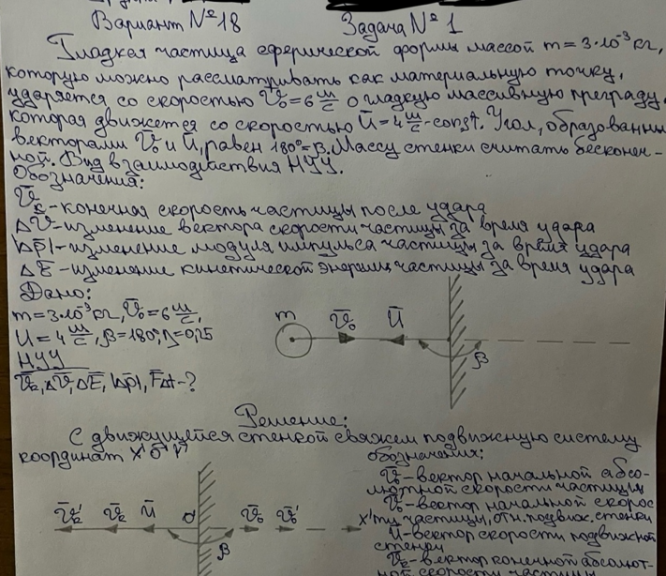 Вариант №18 Задача №1
Гладкая частица сферической формы массой m = 3·10⁻³ кг,
которую можно рассматривать как материальную точку,
ударяется со скоростью V̄₀ = 6 м/с о гладкую массивную преграду,
которая движется со скоростью Ū = 4 м/с - const. Угол, образованн
векторами V̄₀ и Ū, равен 180° = β. Массу стенки считать бесконеч-
ной. Вид взаимодействия НУУ.
Обозначения:
V̄к - конечная скорость частицы после удара
ΔV̄ - изменение вектора скорости частицы за время удара
|Δp̄| - изменение модуля импульса частицы за время удара
ΔE - изменение кинетической энергии частицы за время удара
Дано:
m = 3·10⁻³ кг, V̄₀ = 6 м/с,
U = 4 м/с, β = 180°, = 0,25
НУУ
V̄к, ΔV̄, ΔE, |Δp̄|, F̄Δt - ?
m V̄₀ Ū β
Решение:
С движущейся стенкой свяжем подвижную систему
координат x'o'y'
обозначения:
V̄₀ - вектор начальной абсо-
лютной скорости частицы
V̄₀' - вектор начальной скорос
ти частицы, отн. подвиж. стенки
Ū - вектор скорости подвижной
стенки
V̄к - вектор конечной абсолют-
ной скорости частицы
V̄к' V̄к Ū o' β V̄₀ V̄₀' x'